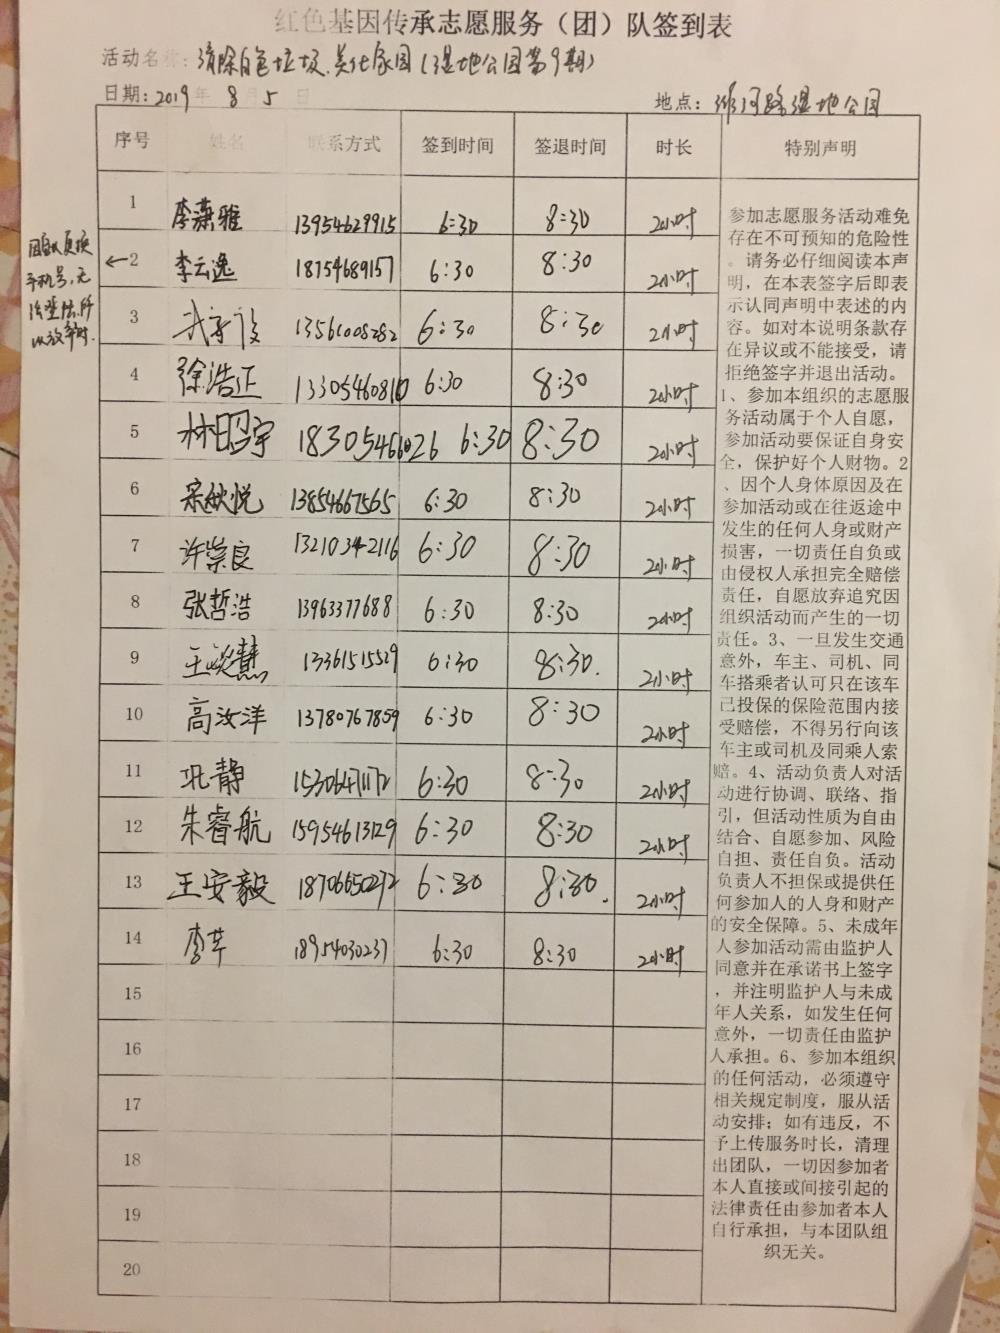 红色基因传承志愿服务（团）队签到表
活动名称：清除白色垃圾、美化家园（湿地公园第9期）
日期：2019年 8月5日 地点：潍河路湿地公园
序号 姓名 联系方式 签到时间 签退时间 时长 特别声明
1 李潇雅 13954629915 6:30 8:30 2小时
2 李云逸 18754689157 6:30 8:30 2小时
3 13561008282 6:30 8:30 2小时
4 徐浩正 13305460810 6:30 8:30 2小时
5 林昭宇 18305466026 6:30 8:30 2小时
6 宋悦 13854667565 6:30 8:30 2小时
7 许崇良 13210342116 6:30 8:30 2小时
8 张哲浩 13963377688 6:30 8:30 2小时
9 王慧 13361515529 6:30 8:30. 2小时
10 高汝洋 13780767859 6:30 8:30 2小时
11 巩静 15306471172 6:30 8:30 2小时
12 朱睿航 15954613129 6:30 8:30 2小时
13 王安毅 18706650272 6:30 8:30. 2小时
14 李芊 18954030237 6:30 8:30 2小时
15
16
17
18
19
20
因自人更换
←
手机号，无
法登陆，所
以放弃时.
参加志愿服务活动难免
存在不可预知的危险性
。请务必仔细阅读本声
明，在本表签字后即表
示认同声明中表述的内
容。如对本说明条款存
在异议或不能接受，请
拒绝签字并退出活动。
1、参加本组织的志愿服
务活动属于个人自愿，
参加活动要保证自身安
全，保护好个人财物。2
、因个人身体原因及在
参加活动或在往返途中
发生的任何人身或财产
损害，一切责任自负或
由侵权人承担完全赔偿
责任，自愿放弃追究因
组织活动而产生的一切
责任。3、一旦发生交通
意外，车主、司机、同
车搭乘者认可只在该车
已投保的保险范围内接
受赔偿，不得另行向该
车主或司机及同乘人索
赔。4、活动负责人对活
动进行协调、联络、指
引，但活动性质为自由
结合、自愿参加、风险
自担、责任自负。活动
负责人不担保或提供任
何参加人的人身和财产
的安全保障。5、未成年
人参加活动需由监护人
同意并在承诺书上签字
，并注明监护人与未成
年人关系，如发生任何
意外，一切责任由监护
人承担。6、参加本组织
的任何活动，必须遵守
相关规定制度，服从活
动安排；如有违反，不
予上传服务时长，清理
出团队，一切因参加者
本人直接或间接引起的
法律责任由参加者本人
自行承担，与本团队组
织无关。